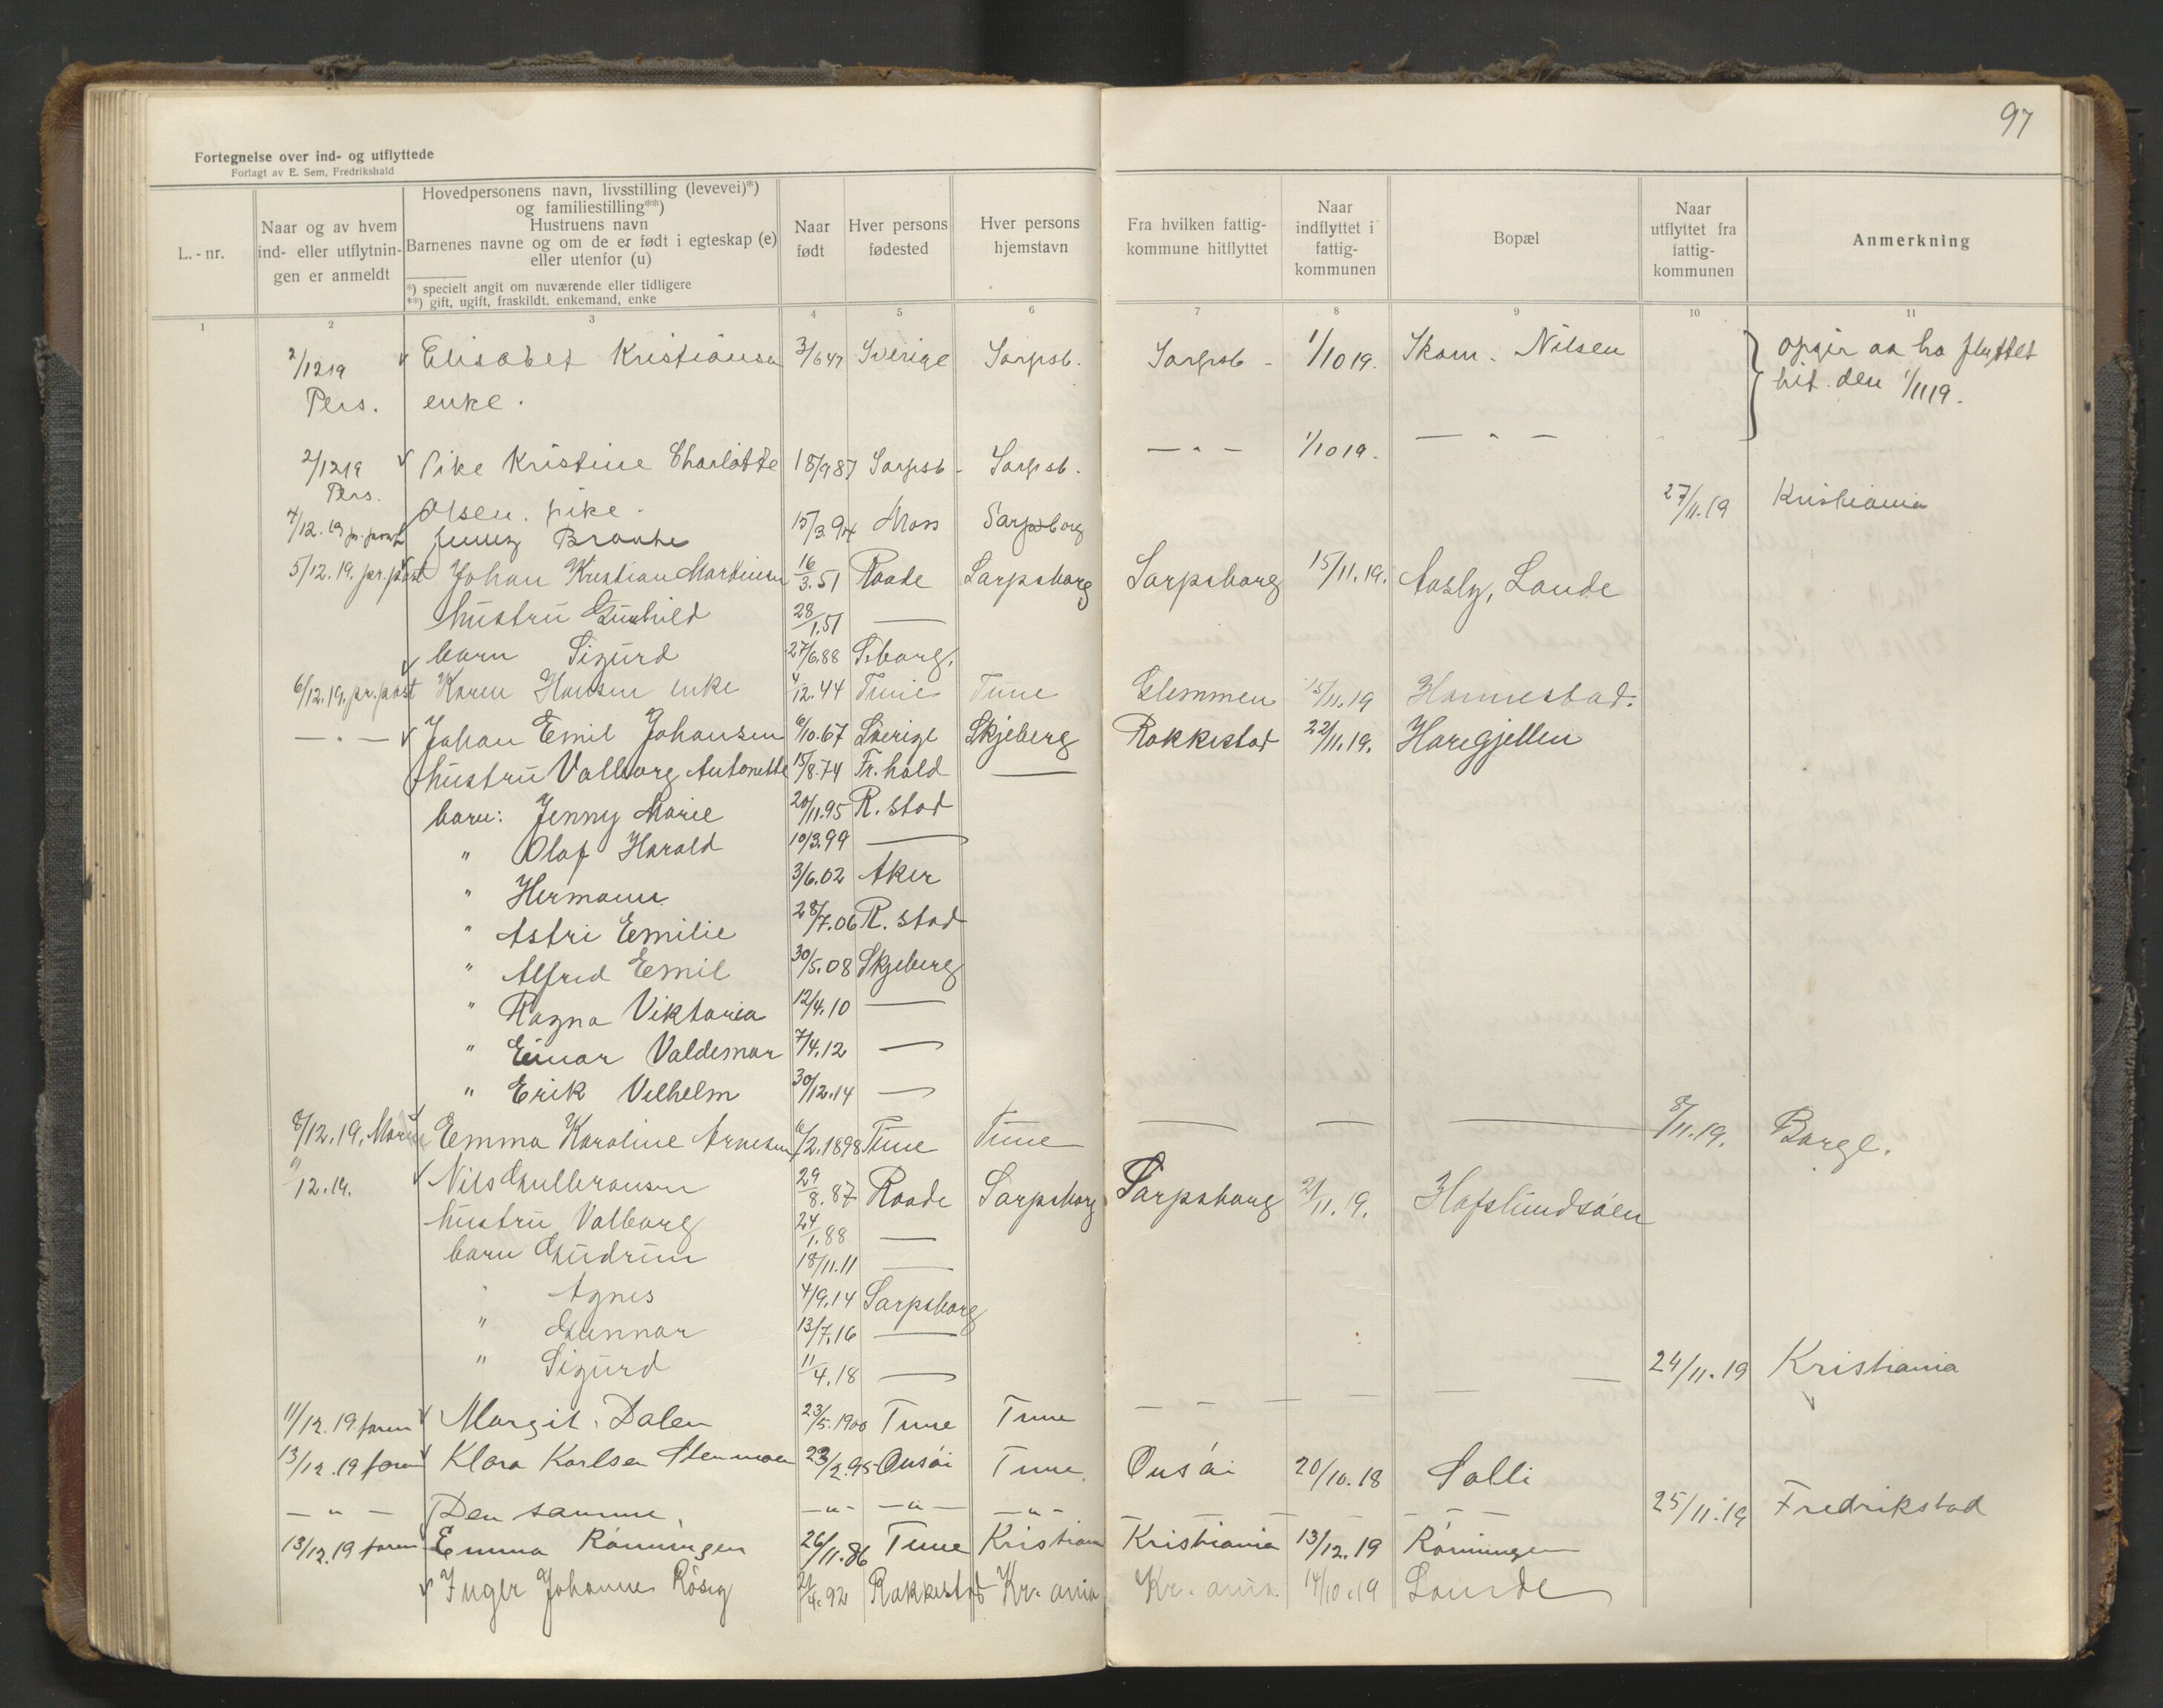 97
Fortegnelse over ind- og utflyttede
Forlagt av E. Sem, Fredrikshald
L.-nr.
Naar og av hvem
ind- eller utflytnin-
gen er anmeldt
Hovedpersonens navn, livsstilling (levevei)*)
og familiestilling**)
Hustruens navn
Barnenes navne og om de er født i egteskap (e)
eller utenfor (u)
*) specielt angit om nuværende eller tidligere
**) gift, ugift, fraskildt, enkemand, enke
Naar
født
Hver persons
fødested
Hver persons
hjemstavn
Fra hvilken fattig-
kommune hitflyttet
Naar
indflyttet i
fattig-
kommunen
Bopæl
Naar
utflyttet fra
fattig-
kommunen
Anmerkning
1 2 3 4 5 6 7 8 9 10 11
2/12 19 Elisabet Kristiansen 3/6 47 Sverige Sarpsb. Sarpsb - 1/10 19. Skom. Nilsen opgir aa ha flyttet
Pers. enke. hit den 1/11 19.
2/12 19 Pike Kristine Charlotte 18/9 87 Sarpsb - Sarpsb. — " — 1/10 19. — " —
Pers. Olsen. pike.
4/12. 19 pr. post Jenny Braathe 15/3. 94 Moss Sarpsborg 27/11.19 Kristiania
5/12. 19. pr. post Johan Kristian Martinsen 16/3. 51 Raade Sarpsborg Sarpsborg 15/11. 19. Aasly, Lande
hustru Gunhild 28/1. 51 —
barn Sigurd 27/6.88 S.borg.
6/12. 19. pr. post Karen Hansen enke 4/12. 44 Tune Tune Glemmen 15/11. 19 Hannestad.
— " — Johan Emil Johansen 6/10. 67 Sverige Skjeberg Rakkestad 22/11. 19. Haregjellen
hustru Valborg Antonette 15/8. 74 Fr.hald —
barn: Jenny Marie 20/11. 95 R. stad
" Olaf Harald 10/3 99 —
" Hermann 3/6. 02 Aker
" Astri Emilie 28/7. 06 R. stad
" Alfred Emil 30/5. 08 Skjeberg
" Ragna Viktoria 12/4. 10 —
" Einar Valdemar 7/4. 12 —
" Erik Vilhelm 30/12. 14 —
8/12. 19, Emma Karoline Arnesen 6/2. 1898 Tune Tune — — — 8/11. 19. Borge.
9/12. 19. Nils Gulbransen 29/8. 87 Raade Sarpsborg Sarpsborg 21/11. 19. Hafslundsøen
hustru Valborg 24/1. 88 —
barn Gudrun 18/11. 11 —
" Agnes 4/9. 14 Sarpsborg
" Gunnar 13/7. 16 —
" Sigurd 11/4. 18 —
11/12. 19. faren Margit Dalen 23/5. 1900 Tune Tune — — — — — — 24/11. 19 Kristiania
13/12. 19 faren Klara Karlsen Stenmoen 23/2. 95 Onsøi Tune. Onsøi 20/10. 18 Solli
— " — Den samme. — " — — " — — " — — — — — — 25/11. 19 Fredrikstad
13/12. 19 faren Emma Rønningen 26/11. 86 Tune Kristiania Kristiania 13/12. 19 Rønningen
Inger Johanne Røseg 21/4. 92 Rakkestad Kr. ania Kr. ania. 14/10. 19 Lande